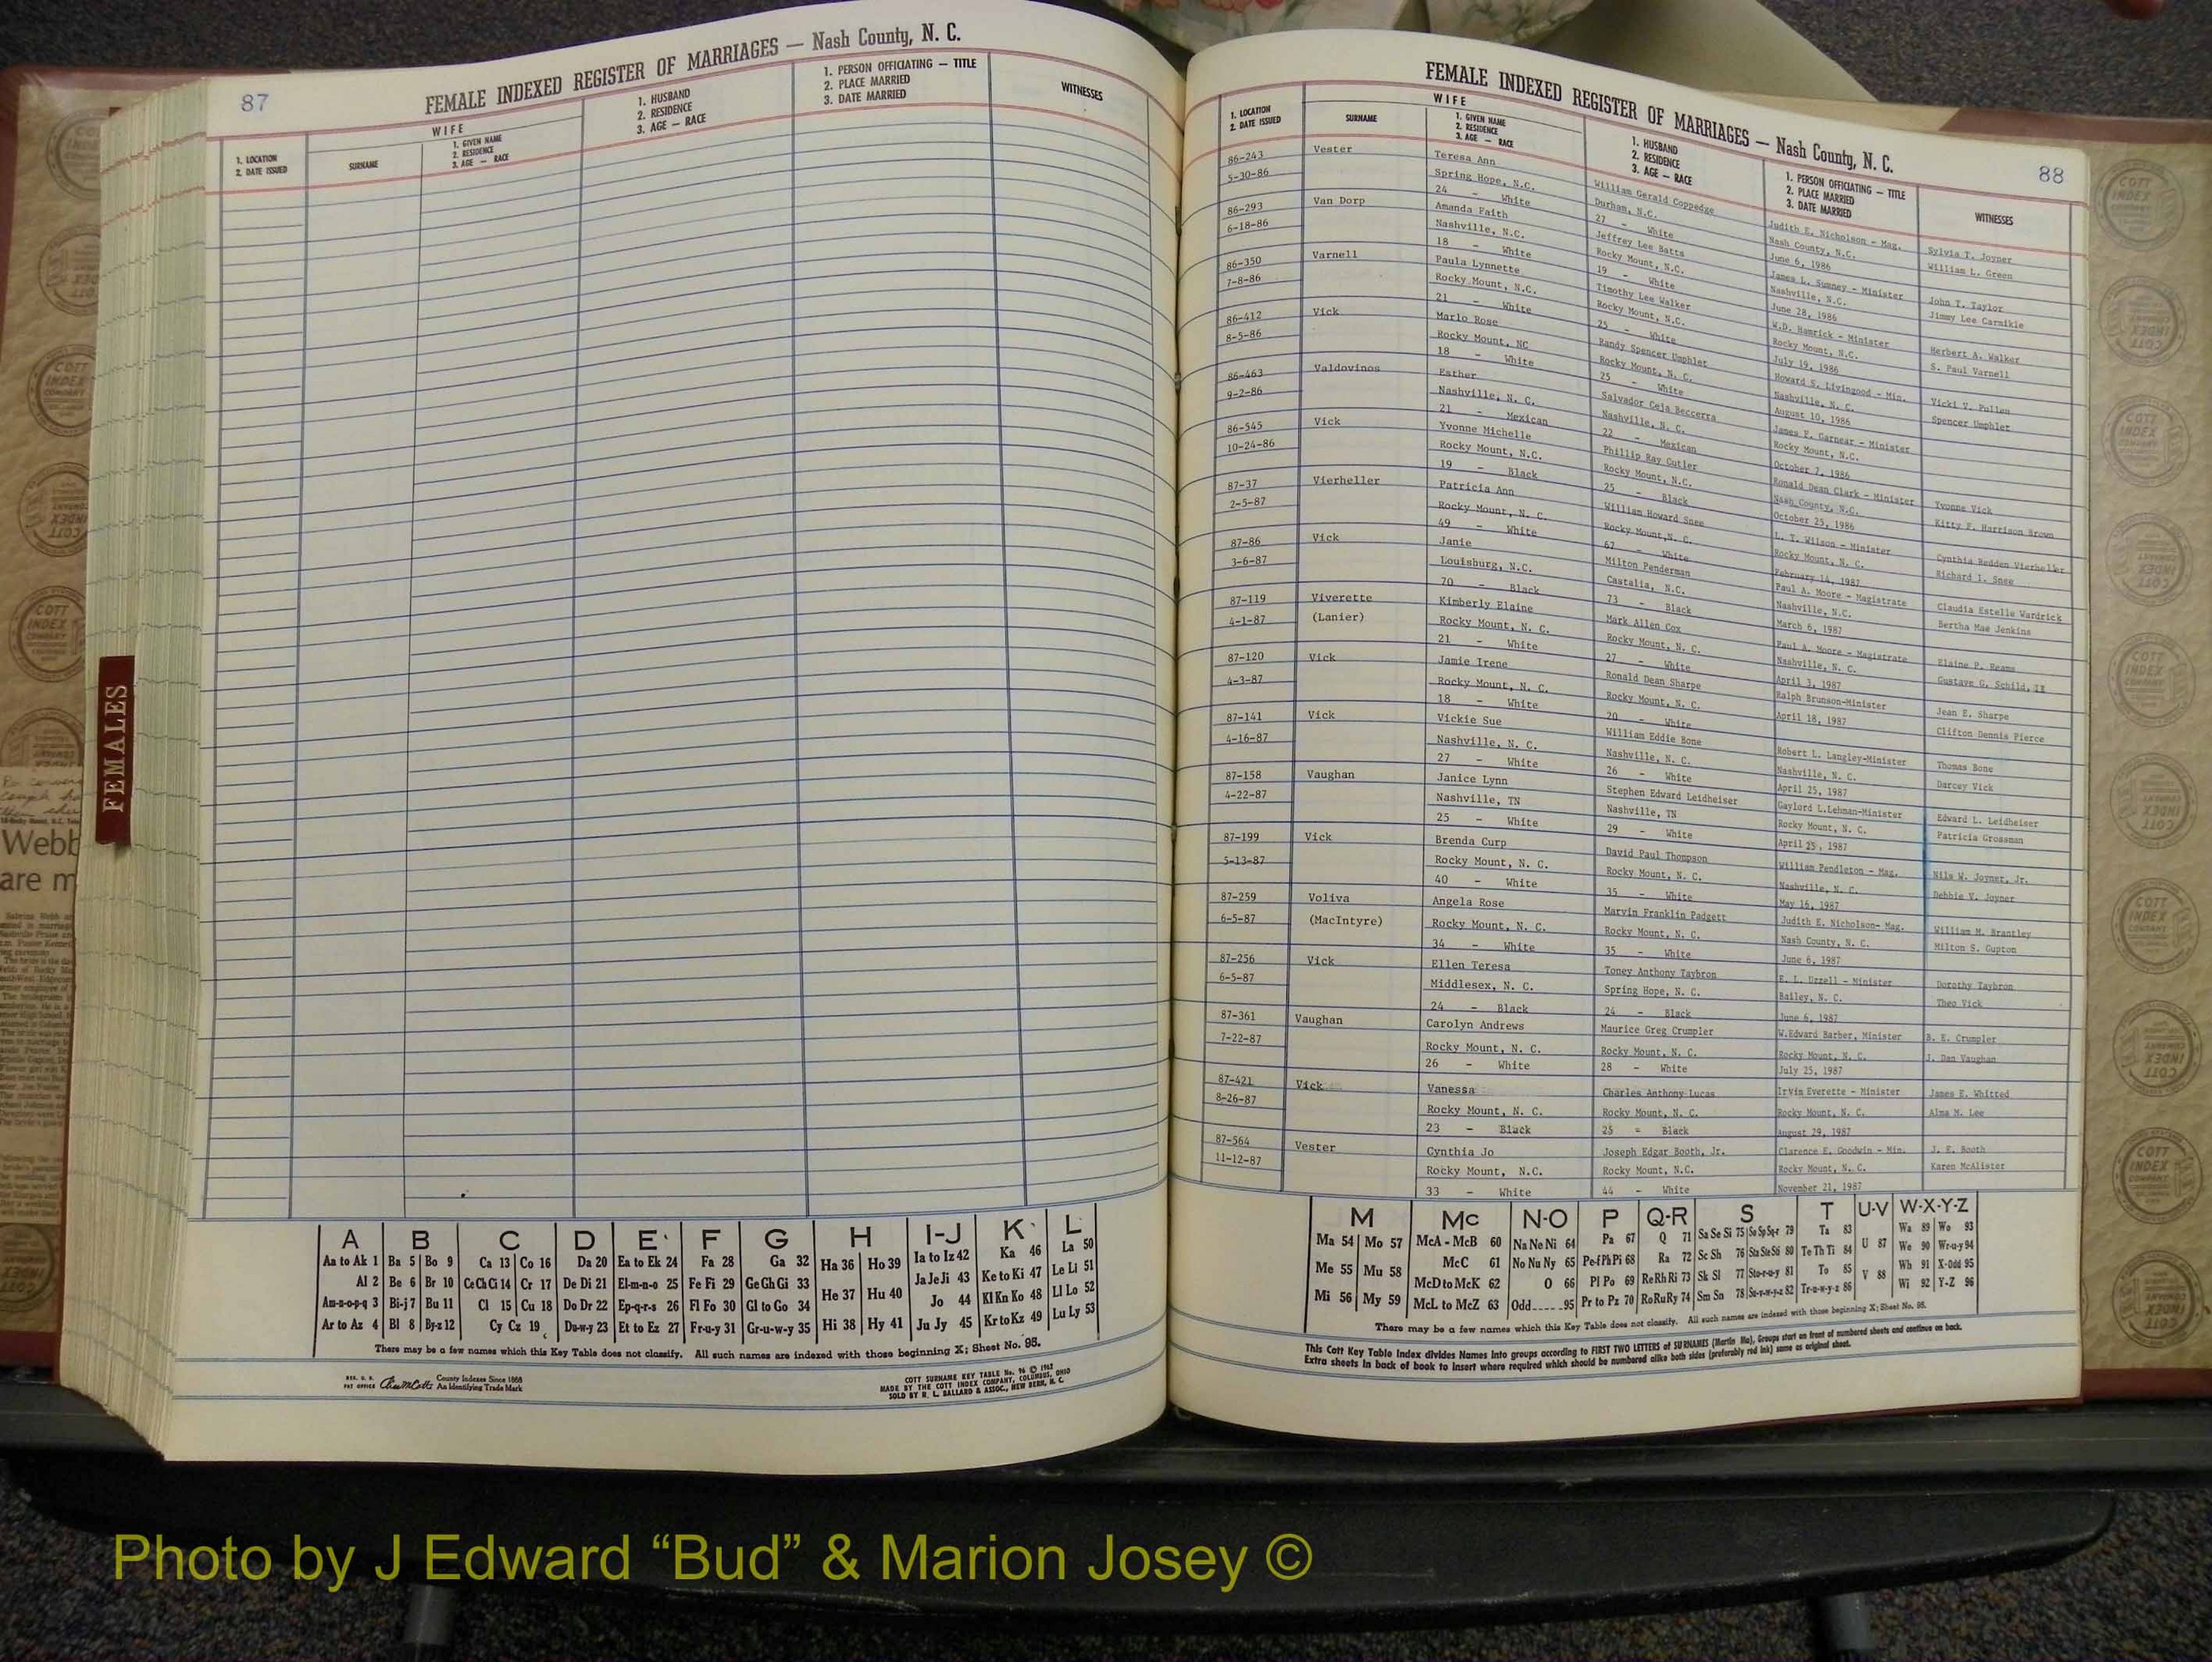 87
FEMALE INDEXED REGISTER OF MARRIAGES — Nash County, N. C.
1. LOCATION
2. DATE ISSUED
WIFE
SURNAME
1. GIVEN NAME
2. RESIDENCE
3. AGE — RACE
1. HUSBAND
2. RESIDENCE
3. AGE — RACE
1. PERSON OFFICIATING — TITLE
2. PLACE MARRIED
3. DATE MARRIED
WITNESSES
FEMALES
Webb
are m
A B C D E F G H I-J K L
Aa to Ak 1 Ba 5 Bo 9 Ca 13 Co 16 Da 20 Ea to Ek 24 Fa 28 Ga 32 Ha 36 Ho 39 Ia to Iz 42 Ka 46 La 50
Al 2 Be 6 Br 10 Ce Ch Ci 14 Cr 17 De Di 21 El-m-n-o 25 Fe Fi 29 Ge Gh Gi 33 He 37 Hu 40 Ja Je Ji 43 Ke to Ki 47 Le Li 51
Am-n-o-p-q 3 Bi-j 7 Bu 11 Cl 15 Cu 18 Do Dr 22 Ep-q-r-s 26 Fl Fo 30 Gl to Go 34 Hi 38 Hy 41 Jo 44 Kl Kn Ko 48 Ll Lo 52
Ar to Az 4 Bl 8 By-z 12 Cy Cz 19 Du-w-y 23 Et to Ez 27 Fr-u-y 31 Gr-u-w-y 35 Ju Jy 45 Kr to Kz 49 Lu Ly 53
There may be a few names which this Key Table does not classify. All such names are indexed with those beginning X; Sheet No. 95.
REG. U. S.
PAT OFFICE
County Indexes Since 1888
An Identifying Trade Mark
COTT SURNAME KEY TABLE No. 96 © 1962
MADE BY THE COTT INDEX COMPANY, COLUMBUS, OHIO
SOLD BY R. L. BALLARD & ASSOC., NEW BERN, N. C.
FEMALE INDEXED REGISTER OF MARRIAGES — Nash County, N. C.
88
1. LOCATION
2. DATE ISSUED
WIFE
SURNAME
1. GIVEN NAME
2. RESIDENCE
3. AGE — RACE
1. HUSBAND
2. RESIDENCE
3. AGE — RACE
1. PERSON OFFICIATING — TITLE
2. PLACE MARRIED
3. DATE MARRIED
WITNESSES
86-243 Vester Teresa Ann William Gerald Coppedge Judith E. Nicholson - Mag. Sylvia T. Joyner
5-30-86 Spring Hope, N.C. Durham, N.C. Nash County, N.C. William L. Green
24 - White 27 - White June 6, 1986
86-293 Van Dorp Amanda Faith Jeffrey Lee Batts James L. Sumney - Minister John T. Taylor
6-18-86 Nashville, N.C. Rocky Mount, N.C. Nashville, N.C. Jimmy Lee Carmikle
18 - White 19 - White June 28, 1986
86-350 Varnell Paula Lynnette Timothy Lee Walker W.D. Hamrick - Minister Herbert A. Walker
7-8-86 Rocky Mount, N.C. Rocky Mount, N.C. Rocky Mount, N.C. S. Paul Varnell
21 - White 25 - White July 19, 1986
86-412 Vick Marlo Rose Randy Spencer Umphlet Howard S. Livingood - Min. Vicki V. Pullen
8-5-86 Rocky Mount, NC Rocky Mount, N. C. Nashville, N. C. Spencer Umphlet
18 - White 25 - White August 10, 1986
86-463 Valdovinos Esther Salvador Ceja Beccerra James F. Garnear - Minister
9-2-86 Nashville, N. C. Nashville, N. C. Rocky Mount, N.C.
21 - Mexican 22 - Mexican October 2, 1986
86-545 Vick Yvonne Michelle Phillip Ray Cutler Ronald Dean Clark - Minister Ivonne Vick
10-24-86 Rocky Mount, N.C. Rocky Mount, N.C. Nash County, N.C. Kitty F. Harrison Brown
19 - Black 25 - Black October 25, 1986
87-37 Vierheller Patricia Ann William Howard Snee L. T. Wilson - Minister Cynthia Redden Vierheller
2-5-87 Rocky Mount, N. C. Rocky Mount,N. C. Rocky Mount, N. C. Richard I. Snee
49 - White 67 - White February 14, 1987
87-86 Vick Janie Milton Penderman Paul A. Moore - Magistrate Claudia Estelle Wardrick
3-6-87 Louisburg, N.C. Castalia, N.C. Nashville, N.C. Bertha Mae Jenkins
70 - Black 73 - Black March 6, 1987
87-119 Viverette Kimberly Elaine Mark Allen Cox Paul A. Moore - Magistrate Elaine P. Reams
4-1-87 (Lanier) Rocky Mount, N. C. Rocky Mount, N. C. Nashville, N. C. Gustave G. Schild, II
21 - White 27 - White April 3, 1987
87-120 Vick Jamie Irene Ronald Dean Sharpe Ralph Brunson-Minister Jean E. Sharpe
4-3-87 Rocky Mount, N. C. Rocky Mount, N. C. April 18, 1987 Clifton Dennis Pierce
18 - White 20 - White
87-141 Vick Vickie Sue William Eddie Bone Robert L. Langley-Minister Thomas Bone
4-16-87 Nashville, N. C. Nashville, N. C. Nashville, N. C. Darcey Vick
27 - White 26 - White April 25, 1987
87-158 Vaughan Janice Lynn Stephen Edward Leidheiser Gaylord L.Lehman-Minister Edward L. Leidheiser
4-22-87 Nashville, TN Nashville, TN Rocky Mount, N. C. Patricia Grossman
25 - White 29 - White April 25, 1987
87-199 Vick Brenda Curp David Paul Thompson William Pendleton - Mag. Nils W. Joyner, Jr.
5-13-87 Rocky Mount, N. C. Rocky Mount, N. C. Nashville, N. C. Debbie V. Joyner
40 - White 35 - White May 16, 1987
87-259 Voliva Angela Rose Marvin Franklin Padgett Judith E. Nicholson- Mag. William M. Brantley
6-5-87 (MacIntyre) Rocky Mount, N. C. Rocky Mount, N. C. Nash County, N. C. Milton S. Gupton
34 - White 35 - White June 6, 1987
87-256 Vick Ellen Teresa Toney Anthony Taybron E. L. Uzzell - Minister Dorothy Taybron
6-5-87 Middlesex, N. C. Spring Hope, N. C. Bailey, N. C. Theo Vick
24 - Black 24 - Black June 6, 1987
87-361 Vaughan Carolyn Andrews Maurice Greg Crumpler W.Edward Barber, Minister B. E. Crumpler
7-22-87 Rocky Mount, N. C. Rocky Mount, N. C. Rocky Mount, N. C. J. Dan Vaughan
26 - White 28 - White July 25, 1987
87-421 Vick Vanessa Charles Anthony Lucas Irvin Everette - Minister James E. Whitted
8-26-87 Rocky Mount, N. C. Rocky Mount, N. C. Rocky Mount, N. C. Alma M. Lee
23 - Black 25 - Black August 29, 1987
87-564 Vester Cynthia Jo Joseph Edgar Booth, Jr. Clarence E. Goodwin - Min. J. E. Booth
11-12-87 Rocky Mount, N.C. Rocky Mount, N.C. Rocky Mount, N. C. Karen McAlister
33 - White 44 - White November 21, 1987
M Mc N-O P Q-R S T U-V W-X-Y-Z
Ma 54 Mo 57 McA - McB 60 Na Ne Ni 64 Pa 67 Q 71 Sa Se Si 75 So Sp Sq-r 79 Ta 83 U 87 Wa 89 Wo 93
Me 55 Mu 58 McC 61 No Nu Ny 65 Pe-f Ph Pi 68 Ra 72 Sc Sh 76 Sta Ste Sti 80 Te Th Ti 84 V 88 We 90 Wr-u-y 94
Mi 56 My 59 McD to McK 62 O 66 Pl Po 69 Re Rh Ri 73 Sk Sl 77 Sto-r-u-y 81 To 85 Wh 91 X-Odd 95
McL to McZ 63 Odd 95 Pr to Pz 70 Ro Ru Ry 74 Sm Sn 78 Su-v-w-y-z 82 Tr-u-w-y-z 86 Wi 92 Y-Z 96
There may be a few names which this Key Table does not classify. All such names are indexed with those beginning X; Sheet No. 95.
This Cott Key Table Index divides Names into groups according to FIRST TWO LETTERS of SURNAMES (Martin Ma), Groups start on front of numbered sheets and continue on back.
Extra sheets in back of book to insert where required which should be numbered alike both sides (preferably red ink) same as original sheet.
COTT
INDEX
COMPANY
Photo by J Edward “Bud” & Marion Josey ©